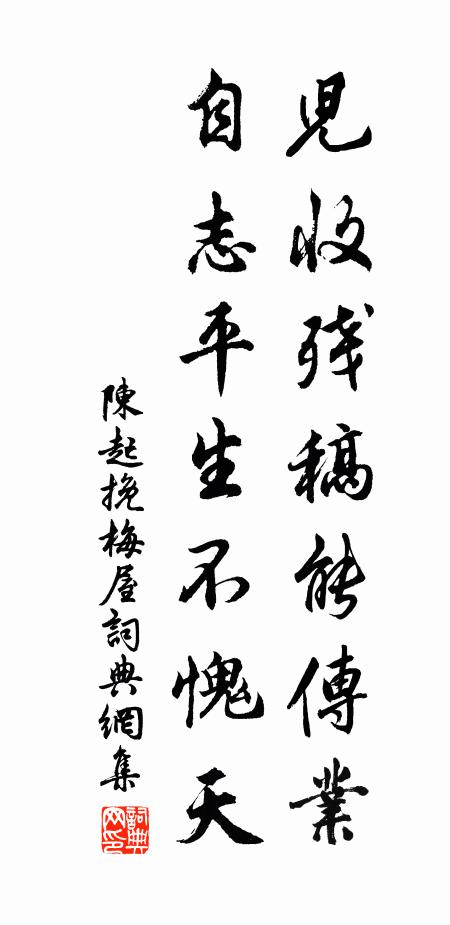 児收残稿能傳業
自志平生不愧天
陳起挽梅屋詞典網集
詞典网印